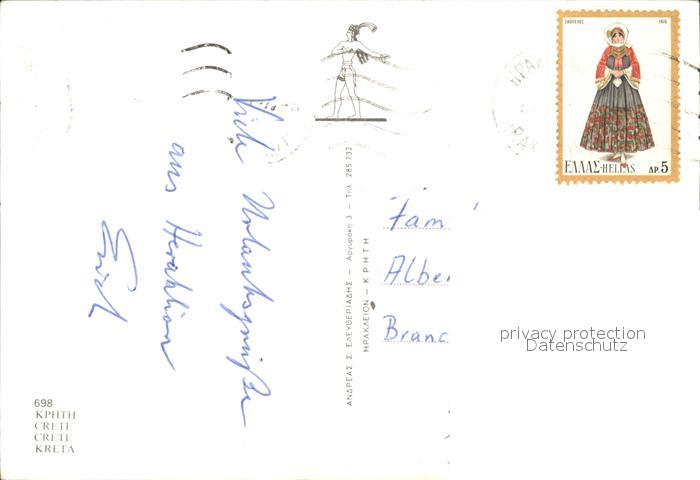 ΣΚΟΠΕΛΟΣ 1974
ΕΛΛΑΣ-HELLAS ΔΡ.5
Viele Urlaubsgrüße
aus Heraklion
ΑΝΔΡΕΑΣ Σ. ΕΛΕΥΘΕΡΙΑΔΗΣ — Αργυράκη 3 — Τηλ. 285.732
ΗΡΑΚΛΕΙΟΝ — ΚΡΗΤΗ
Fam
Albe
Branc
privacy protection
Datenschutz
698
ΚΡΗΤΗ
CRETE
CRETE
KRETA